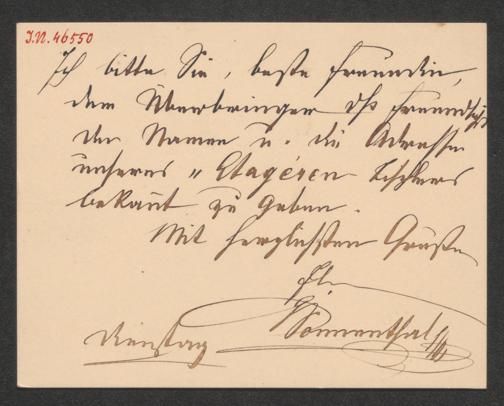 J.N. 46550
Ich bitte Sie, beste Freundin,
dem Überbringer dß freundlichst
den Namen u. die Adresse
unseres "Etagéren-Tischlers
bekañt zu geben.
Mit herzlichsten Grüßen
Ihr
Sonnenthal
Dienstag